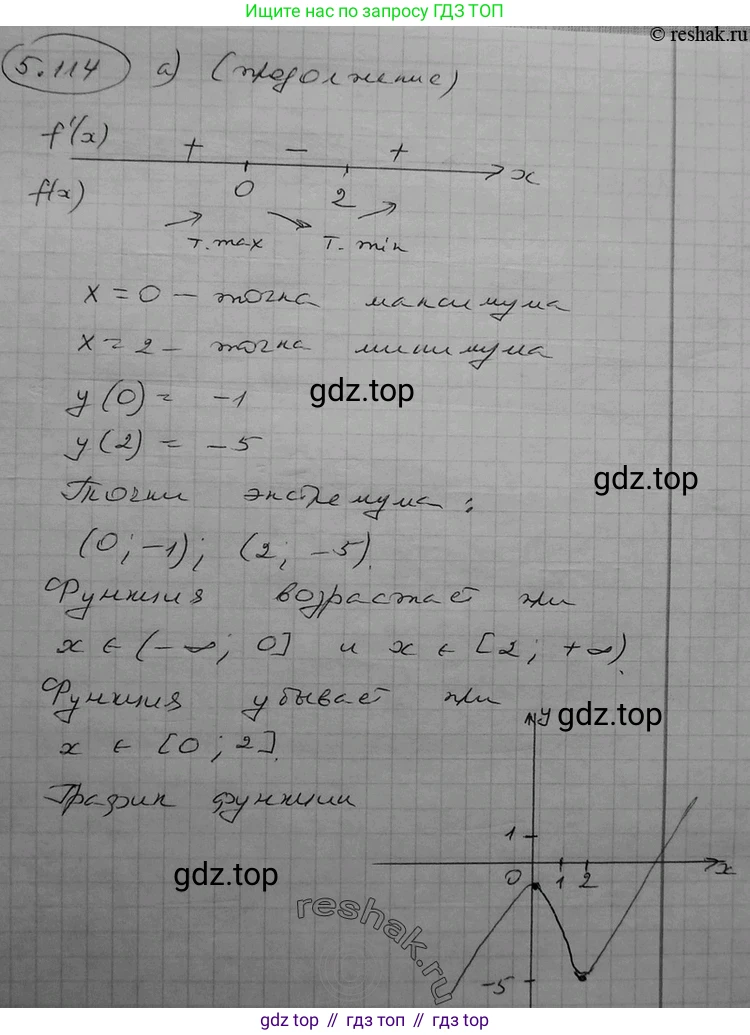 Ищите нас по запросу ГДЗ ТОП
© reshak.ru
5.114 а) (продолжение)
f'(x) + − + x
f(x) 0 2
т. max т. min
x = 0 – точка максимума
x = 2 – точка минимума
y(0) = -1
gdz.top
y(2) = -5
gdz.top
Точки экстремума:
(0; -1); (2; -5).
Функция возрастает при
x ∈ (-∞; 0] и x ∈ [2; +∞).
Функция убывает при
y
gdz.top
x ∈ [0; 2].
График функции
1
0 1 2 x
gdz.top
reshak.ru
-5
gdz.top // gdz.top // gdz.top